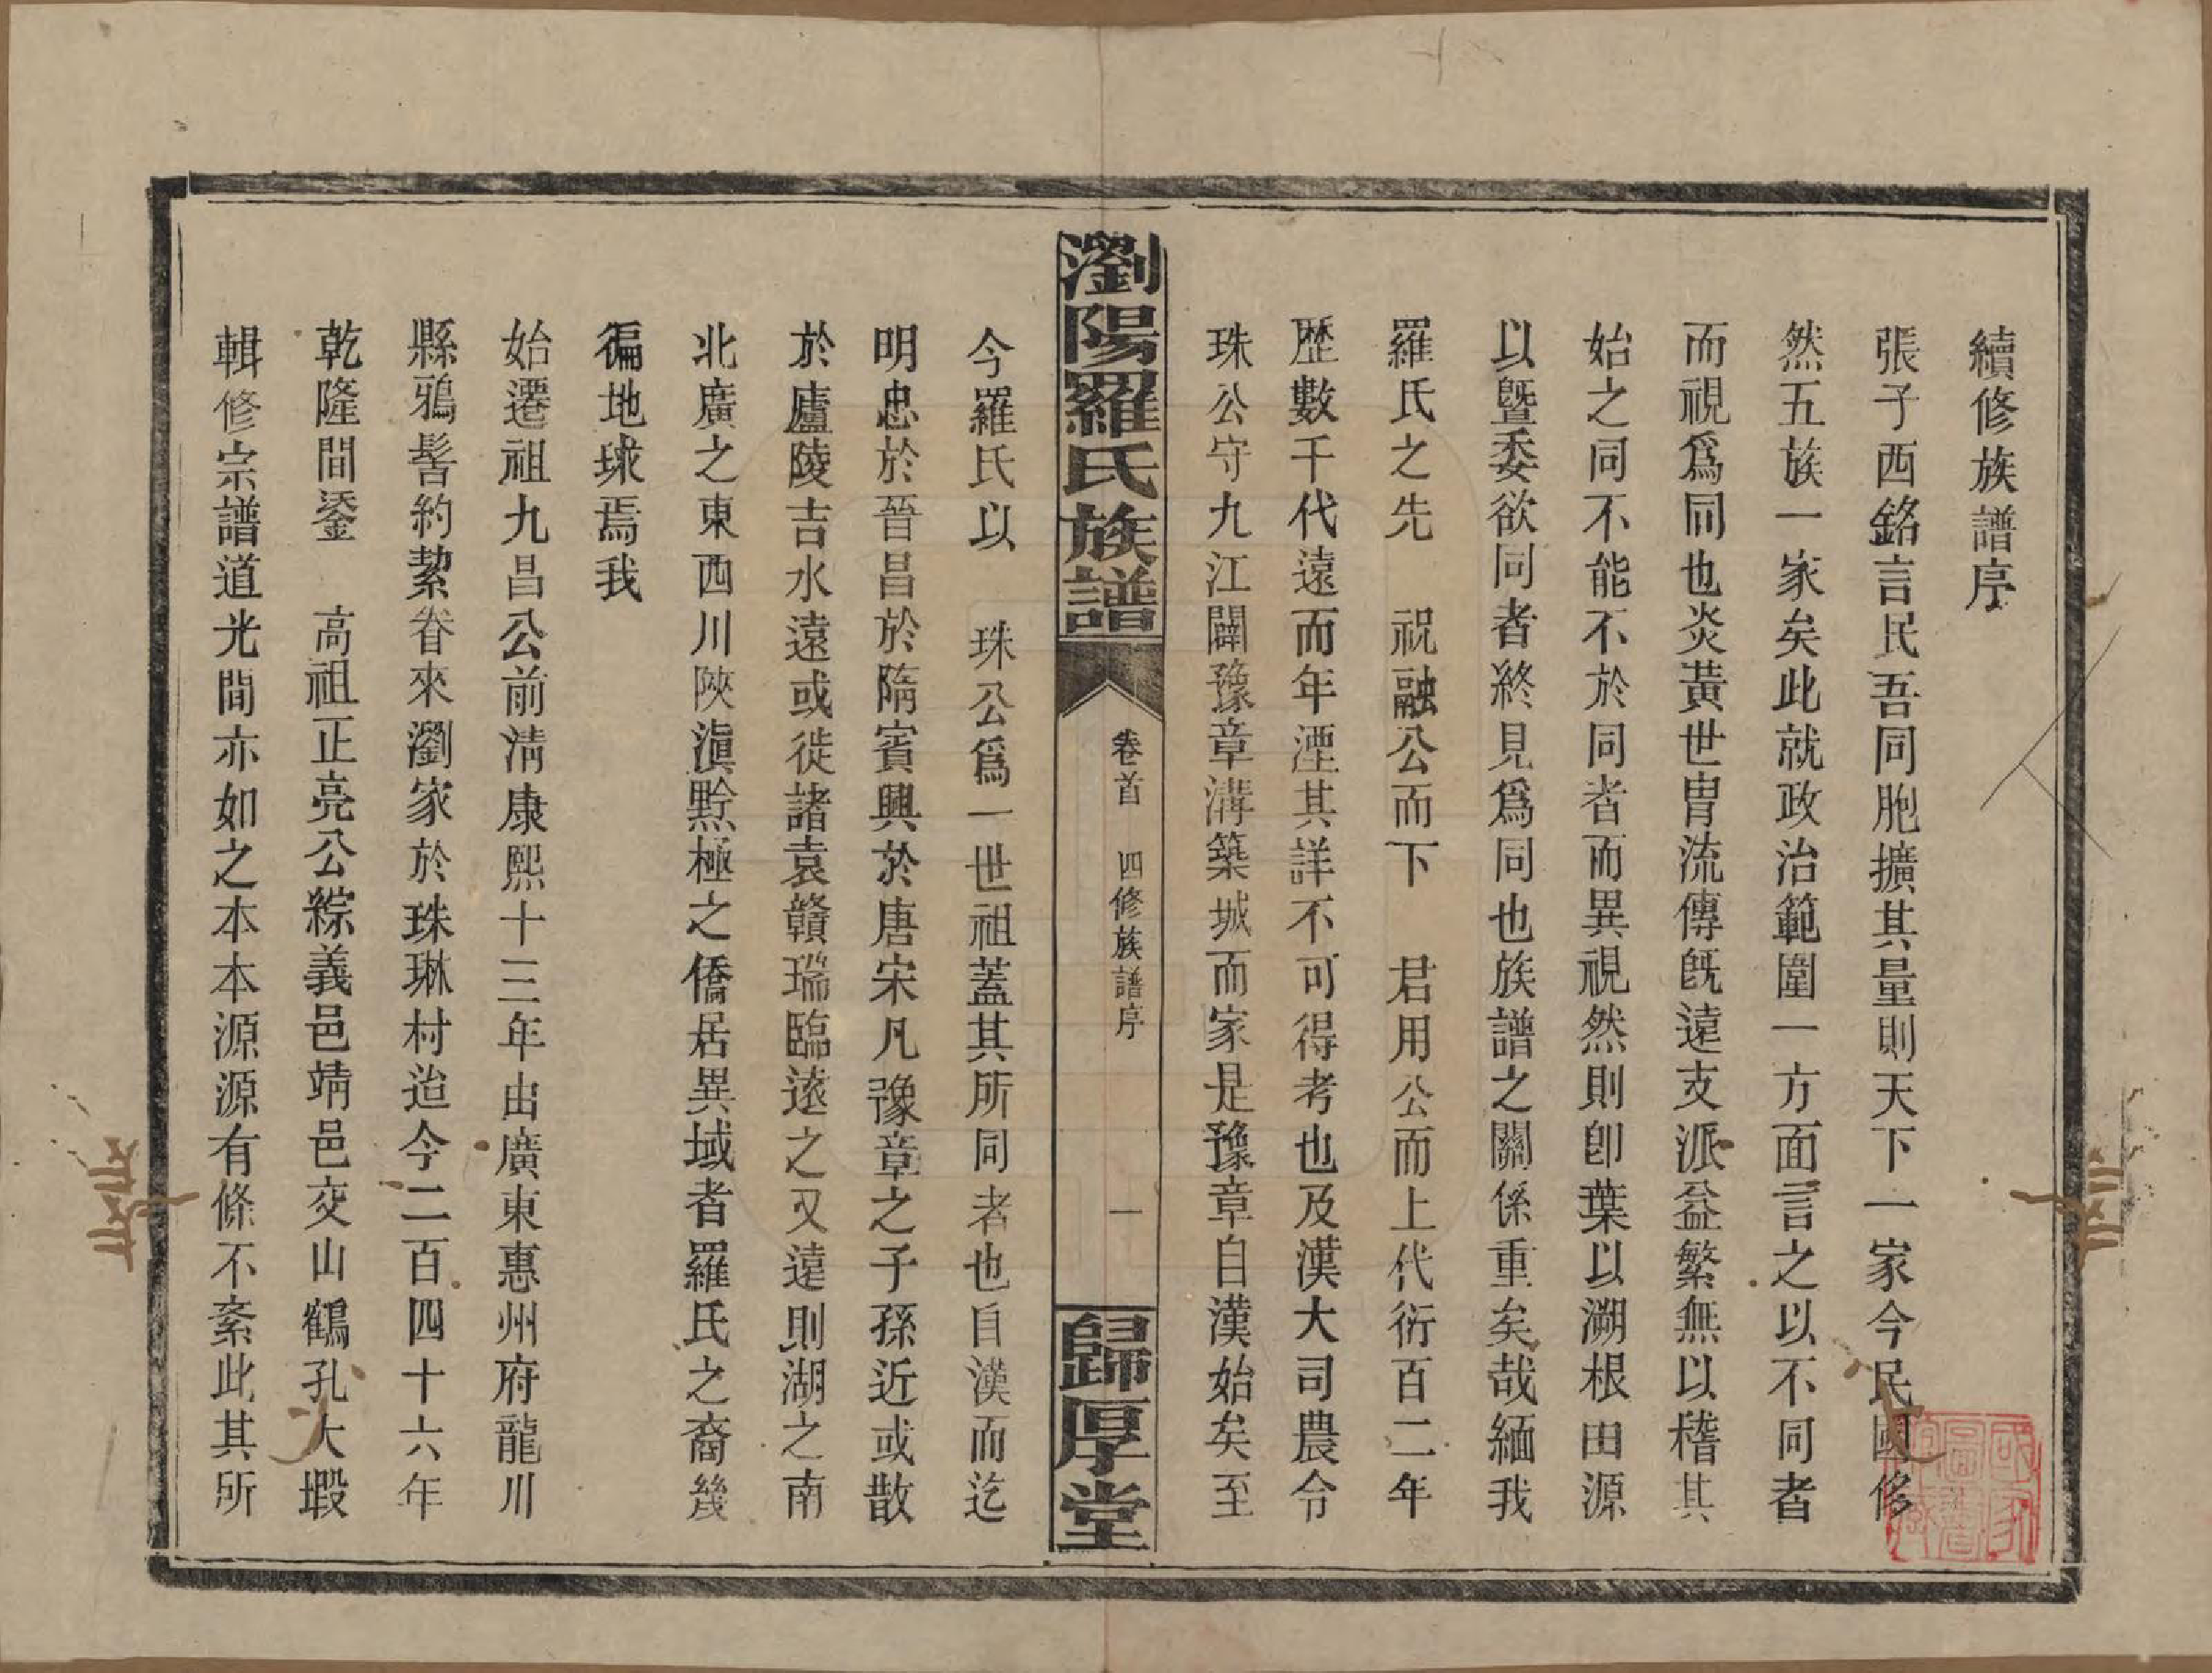 續修族譜序
張子西銘言民吾同胞擴其量則天下一家今民國修
然五族一家矣此就政治範圍一方面言之以不同者
而視爲同也炎黃世冑流傳旣遠支派益繁無以稽其
始之同不能不於同者而異視然則卽葉以溯根由源
以曁委欲同者終見爲同也族譜之關係重矣哉緬我
羅氏之先 祝融公而下 君用公而上代衍百二年
歷數千代遠而年湮其詳不可得考也及漢大司農令
珠公守九江闢豫章溝築城而家是豫章自漢始矣至
瀏陽羅氏族譜 卷首 四修族譜序 一 歸厚堂
今羅氏以 珠公爲一世祖蓋其所同者也自漢而迄
明忠於晉昌於隋賓興於唐宋凡豫章之子孫近或散
於廬陵吉水遠或徙諸袁贛瑞臨遠之又遠則湖之南
北廣之東西川陝滇黔極之僑居異域者羅氏之裔幾
徧地球焉我
始遷祖九昌公前淸康熙十三年由廣東惠州府龍川
縣鴉髻約絜眷來瀏家於珠琳村迨今二百四十六年
乾隆間鋈 高祖正亮公綜義邑靖邑交山鶴孔大塅
輯修宗譜道光間亦如之本本源源有條不紊此其所